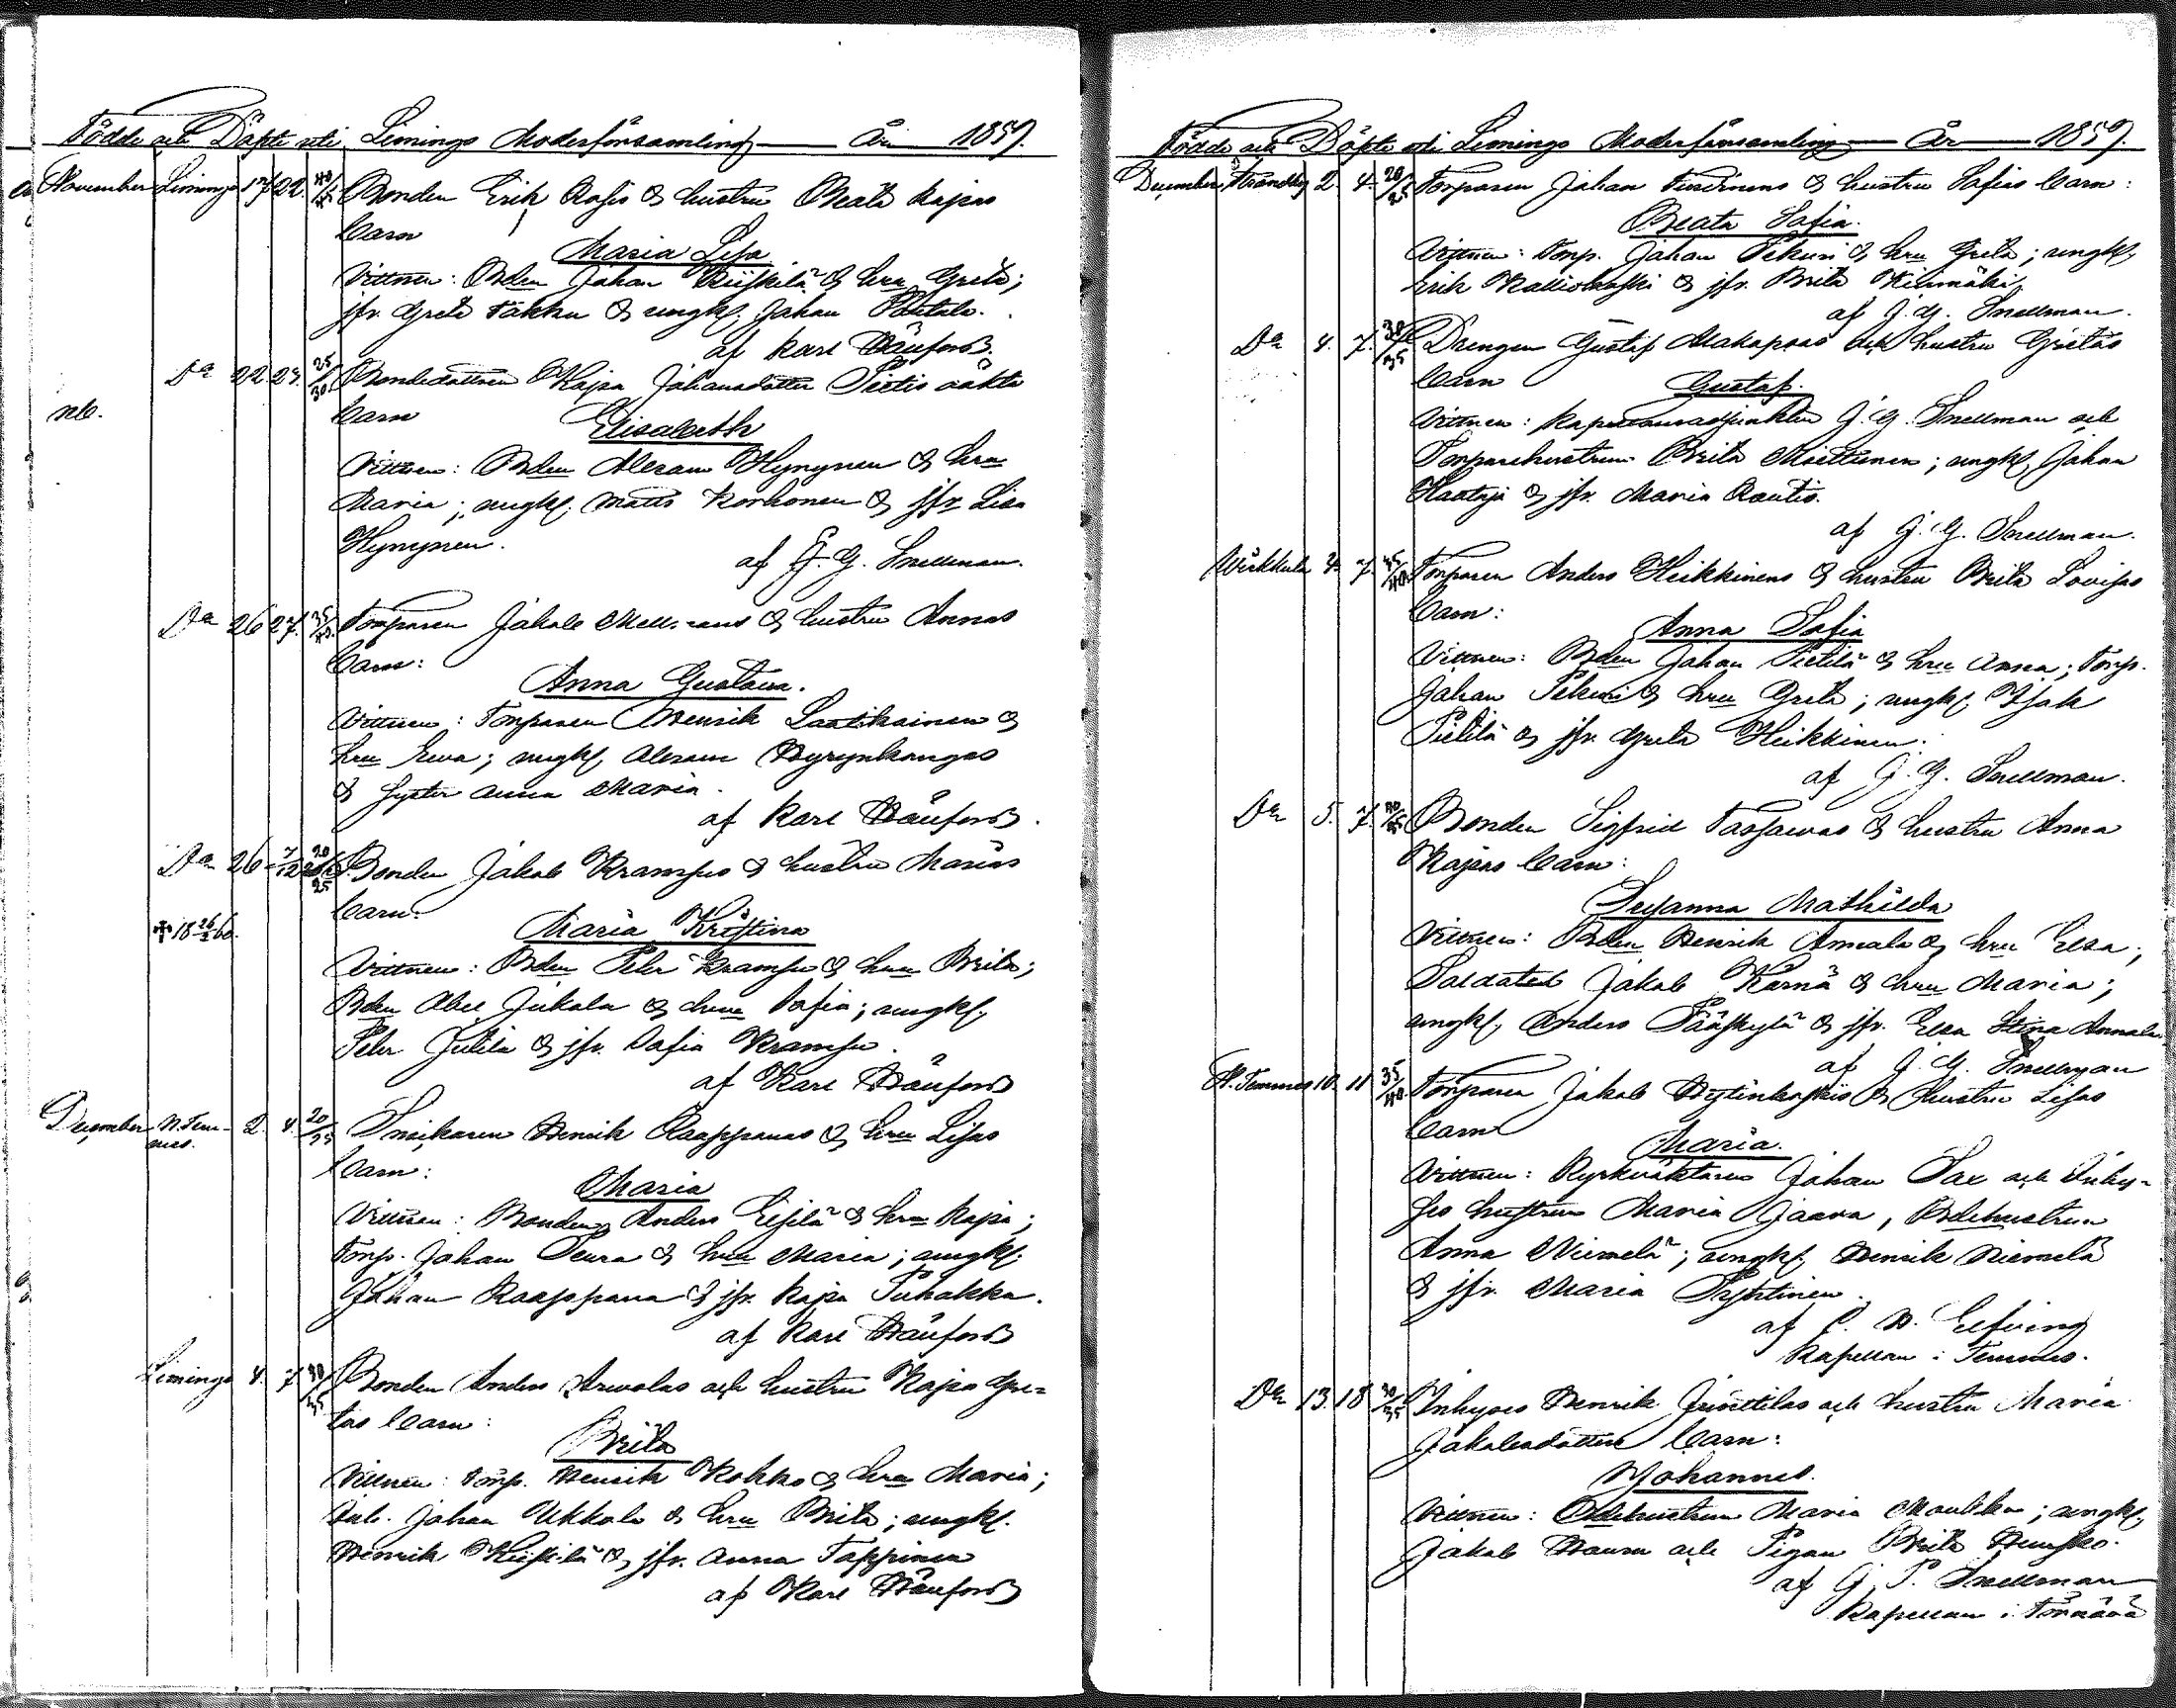 Födde och Döpte uti Limingo Moderförsamling År 1859.
November Limingo 17 22. Bonden Erik Rasis & hustru Beata Kajsas
barn
Maria Lisa
Vittnen: Bden Johan Kiiskilä & hru Greta;
jfr. Greta Takku & ungk. Johan
af Karl Hänfors.
Do 22. 23. 25/30 Bondedottren Kajsa Johansdotter Pietis oäkta
barn
Elisabeth
Vittnen: Bden Abram Hynynen & hru
Maria; ungk. Matts Korhonen & jfr Lisa
Hynynen.
af J. G. Snellman.
Do 26 27. Torparen Jakob & hustru Annas
barn:
Anna Gustava.
Vittnen: Torparen Henrik Laatikainen &
hru Eva; ungk. Abram Hyrynkangas
& syster Anna Maria.
af Karl Hänfors.
Do 26 7/12 20/25 Bonden Jakob Krampus & hustru Marias
barn.
† 18 26/2 60.
Maria Kristina
Vittnen: Bden Petter Krampu & hru Brita;
Bden Abel Jukola & hru Sofia; ungk.
Petter Jukila & jfr. Sofia Krampu.
af Karl Hänfors
December N. Tem-
mes. 2. 4. 20/25 Snickaren Henrik Raappanas & hru Lisas
barn:
Maria
Vittnen: Bonden Anders Eskilä & hru Kajsa;
Torp. Johan Seura & hru Maria; ungk.
Johan Raappana & jfr. Kajsa Puhakka.
af Karl Hänfors
Limingo 4. 7. 30/35 Bonden Anders Arvolas och hustru Kajsa Gre-
tas barn:
Brita
Vittnen: Torp. Henrik Kokko & hru Maria;
Inh. Johan Ukkola & hru Brita; ungk.
Henrik Kiiskilä & jfr. Anna Tappinen
af Karl Hänfors
Födde och Döpte uti Limingo Moderförsamling År 1859.
December 2. 4. 20/25 Torparen Johan & hustru Sofias barn:
Beata Sofia.
Vittnen: Torp. Johan Pekuri & hru Greta; ungk.
Erik Kalliokoski & jfr. Brita
af J. G. Snellman.
Do 4. 7. 30/35 Drengen Gustaf Matapuros och hustru Gretas
barn
Gustaf.
Vittnen: Kapellansadjunkten J. G. Snellman och
Torparehustrun Brita Moittinen; ungk. Johan
Haataja & jfr. Maria Rautio.
af J. G. Snellman.
Wirkkula 4. 7. Torparen Anders Heikkinens & hustru Brita Lovisas
barn:
Anna Sofia
Vittnen: Bden Johan Pietilä & hru Anna; Torp.
Johan Pekuri & hru Greta; ungk. Isak
Pietilä & jfr. Greta Heikkinen.
af J. G. Snellman.
Do 5. 7. Bonden Sigfrid Tassavas & hustru Anna
Kajsas barn:
Susanna Mathilda
Vittnen: Bden Henrik Annala & hru Elsa;
Soldaten Jakob Kärnä & hru Maria;
ungk. Anders Pääskylä & jfr. Elsa Stina Annala.
af J. G. Snellman
N. Temmes 10. 11 35/40 Torparen Jakob Hytinkoskis & hustru Lisas
barn
Maria.
Vittnen: Kyrkväktaren Johan Sax och Inhy-
ses hustrun Maria Jaara, Bdehustrun
Anna Niemelä; ungk. Henrik Niemelä
& jfr. Maria Pyhtinen.
af C. N. Elfving
Kapellan i Temmes.
Do 13. 18 30/35 Inhyses Henrik Junttilas och hustru Maria
Jakobsdotters barn:
Johannes.
Vittnen: Bdehustrun Maria; ungk.
Jakob och Pigan Brita
af G. P. Snellman
Kapellan i